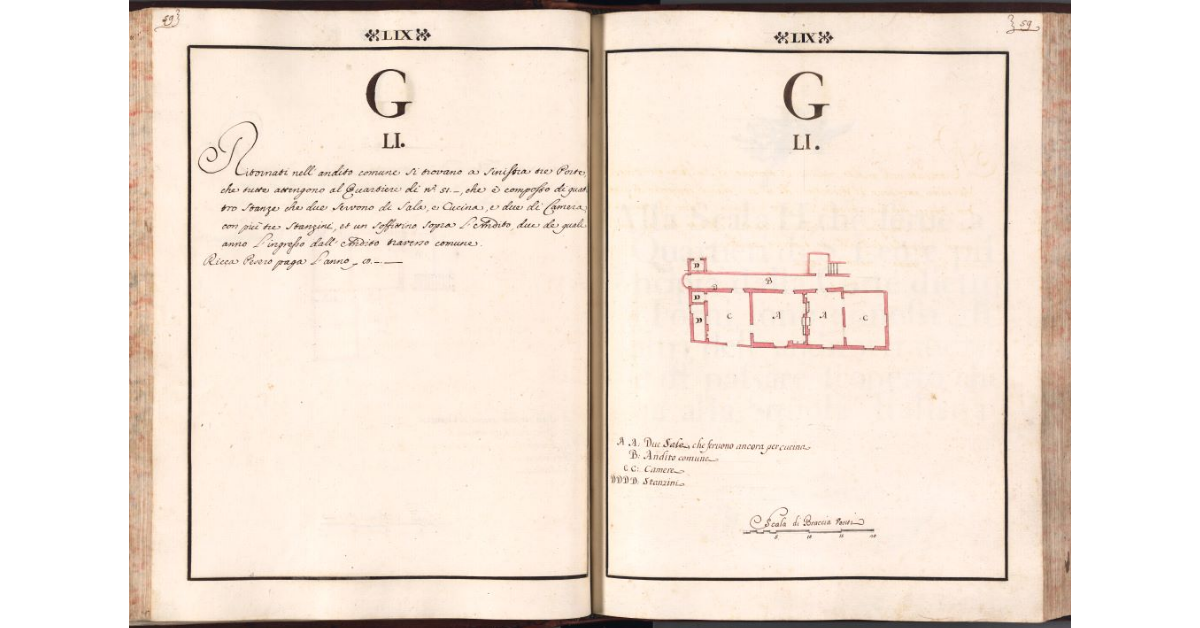 59
LIX
G
LI.
Ritornati nell'andito comune si trovano a sinistra tre Porte,
che tutte attengono al Quartiere di n.º 51.–, che è composto di quat
tro Stanze che due servono di Sala, e Cucina, e due di Camera
con più tre Stanzini, et un soffittino sopra L'Andito, due de quali
anno L'ingresso dall'Andito traverso comune.
Ricca Pesaro paga L'anno
59
LIX
G
LI.
D
B
B
D
D
C
A
A
C
A A. Due Sale, che servono ancora per cucina
B: Andito comune
C C: Camere
D D D D. Stanzini
Scala di Braccia Venti
5 10 15 20